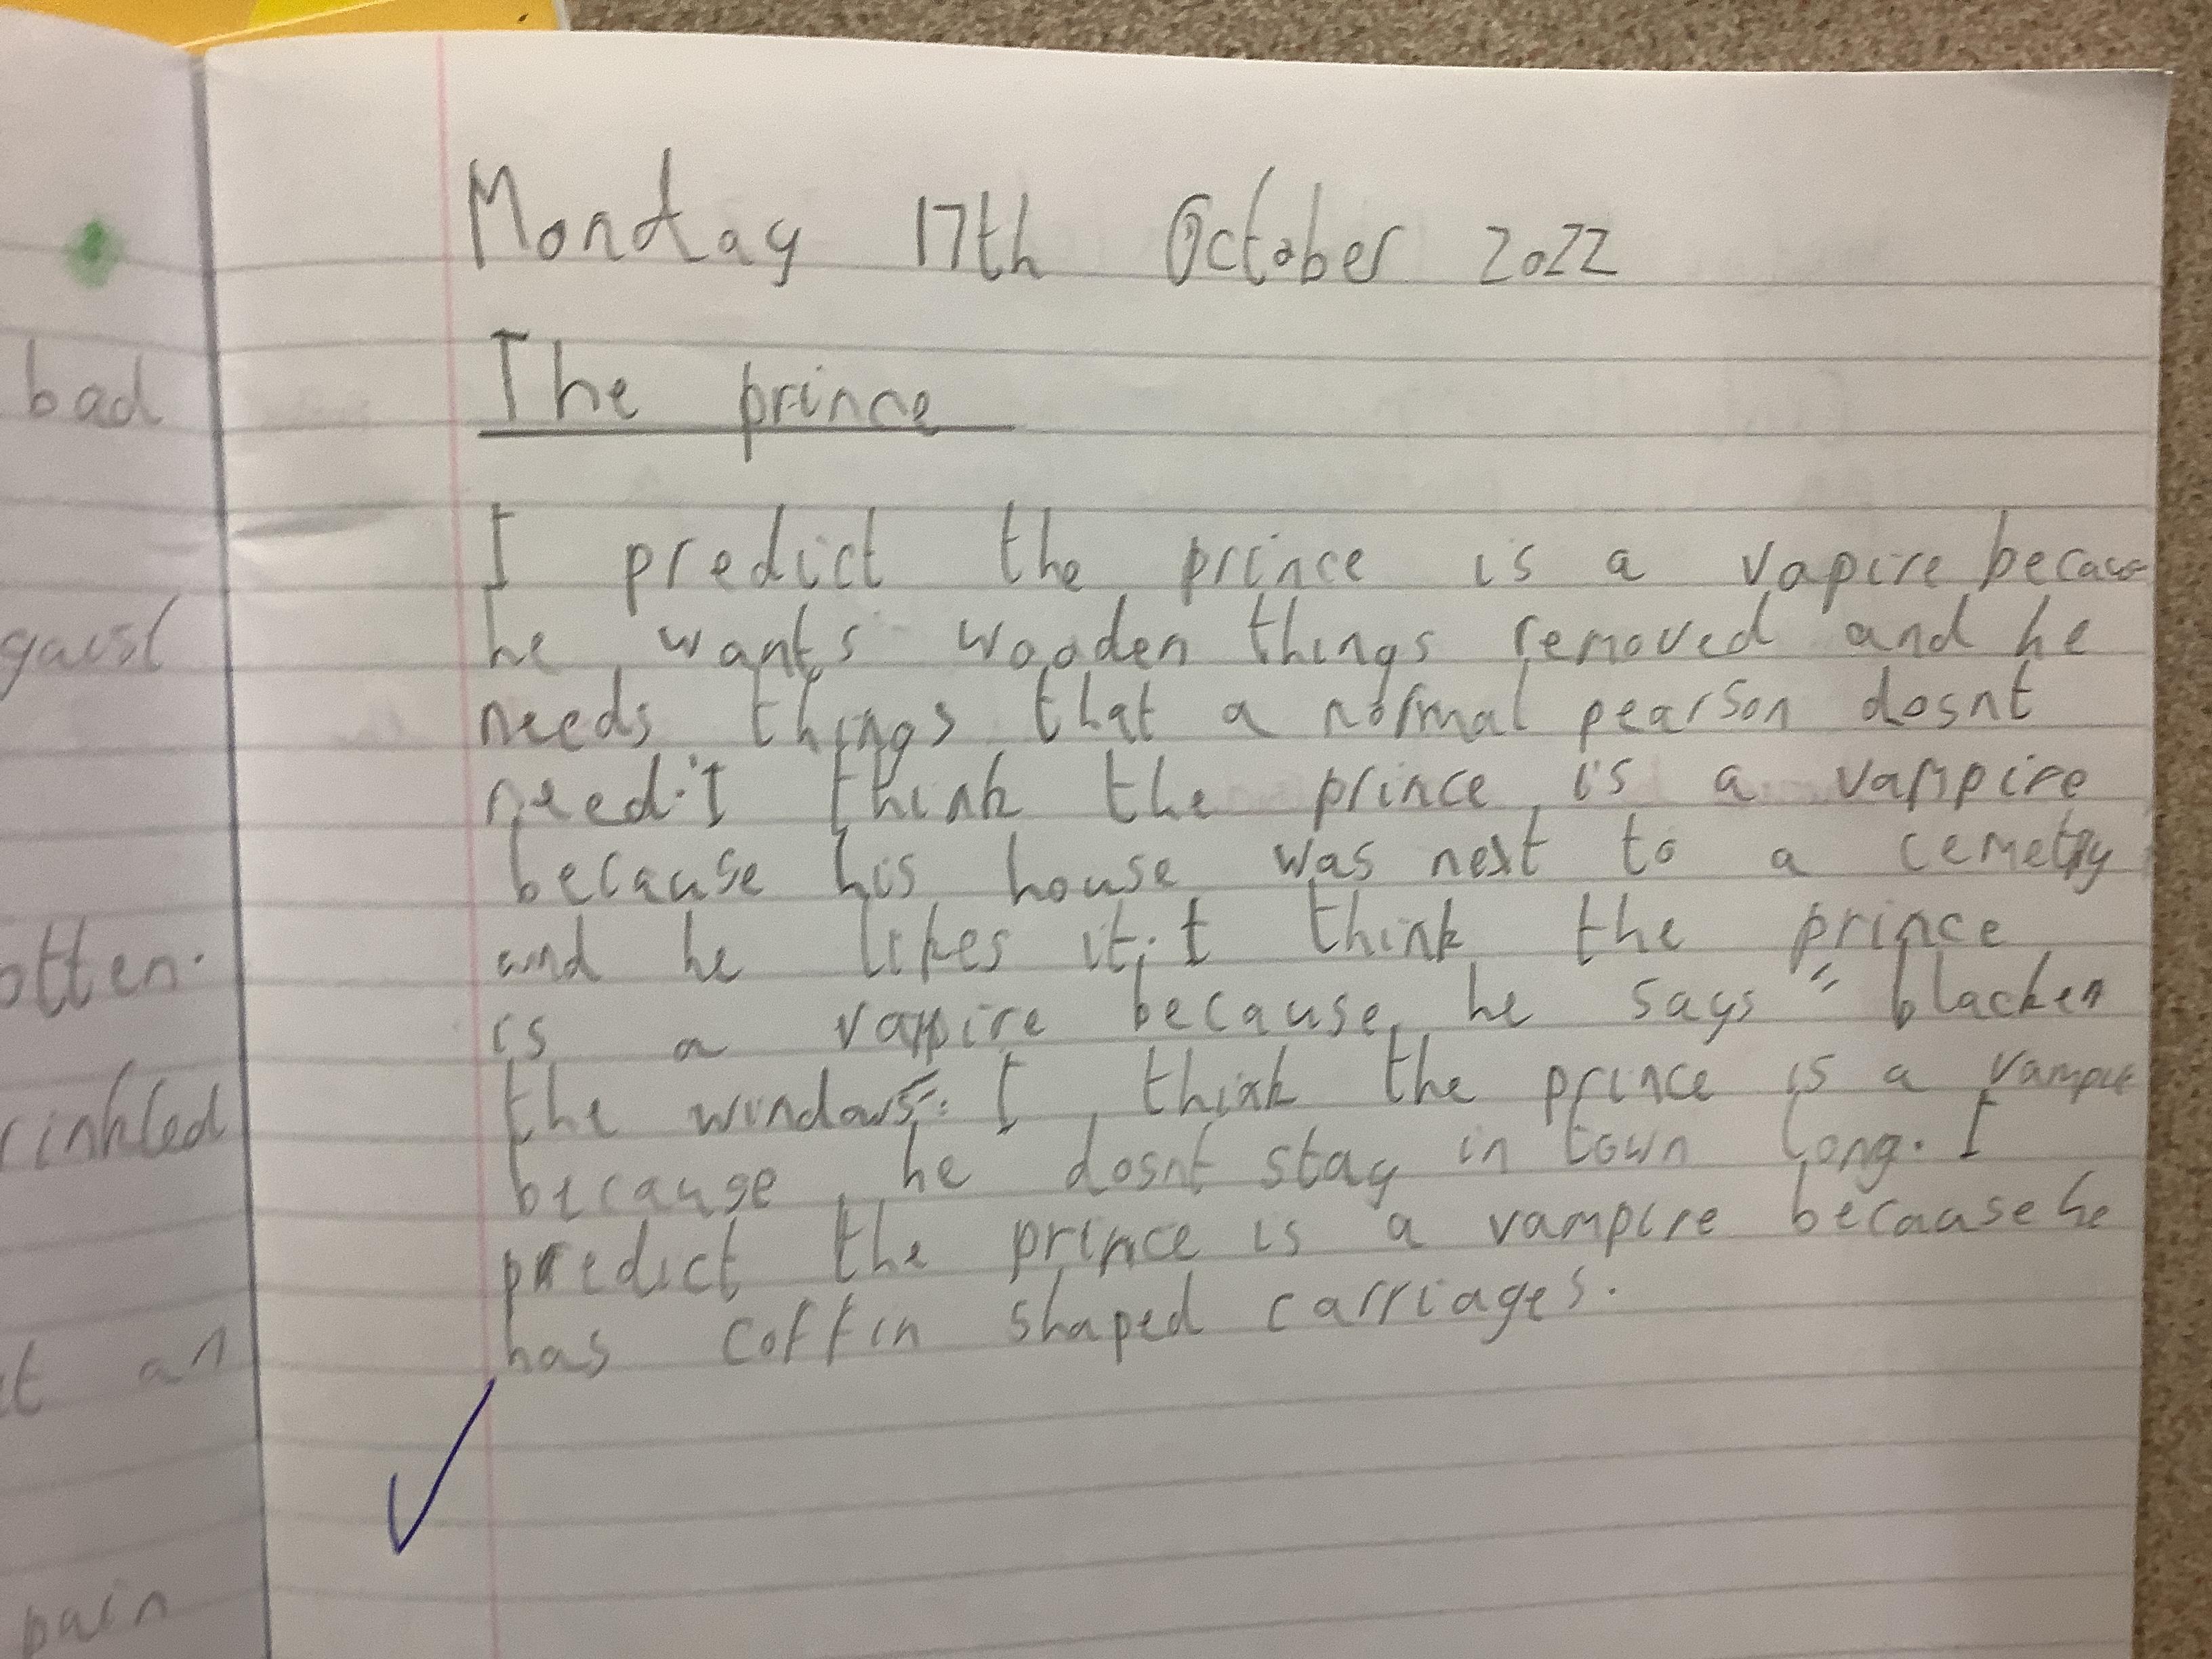 Monday 17th October 2022
The prince
I predict the prince is a vapire because
he wants wooden things removed and he
needs things that a normal pearson dosnt
need. I think the prince is a vampire
because his house was next to a cemetry
and he likes it. I think the prince
is a vampire because he says "blacken
the windows". I think the prince is a vampire
because he dosnt stay in town long. I
predict the prince is a vampire becaase he
has coffin shaped carriages.
bad
otten.
rinkled
an
pain